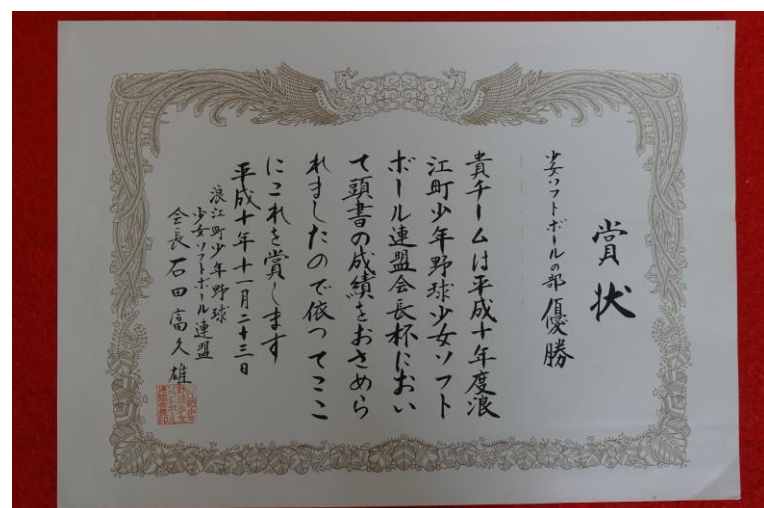 賞状
少女ソフトボールの部 優勝
貴チームは平成十年度浪
江町少年野球少女ソフト
ボール連盟会長杯におい
て頭書の成績をおさめら
れましたので依つてここ
にこれを賞します
平成十年十一月二十三日
浪江町少年野球
少女ソフトボール連盟
会長 石田富久雄